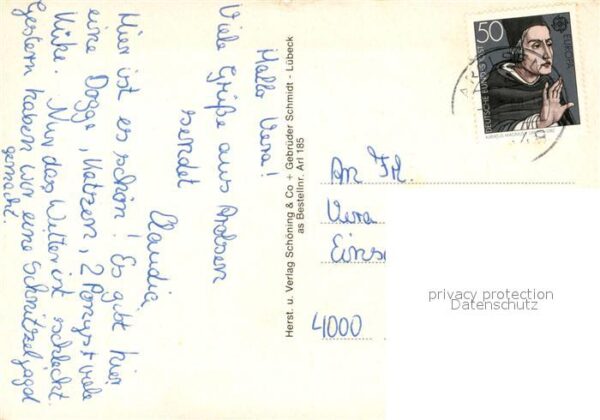 Hallo Vera!
Viele Grüße aus Arlsen
sendet
Claudia.
Hier ist es schön! Es gibt hier
eine Dogge, Katzen, 2 Ponys + viele
Kühe. Nur das Wetter ist schlecht.
Gestern haben wir eine Schnitzeljagd
gemacht.
Herst. u. Verlag Schöning & Co + Gebrüder Schmidt - Lübeck
as Bestellnr. Arl 185
50
EUROPA
DEUTSCHE BUNDESPOST
An Frl.
Vera
Eins
4000
privacy protection
Datenschutz